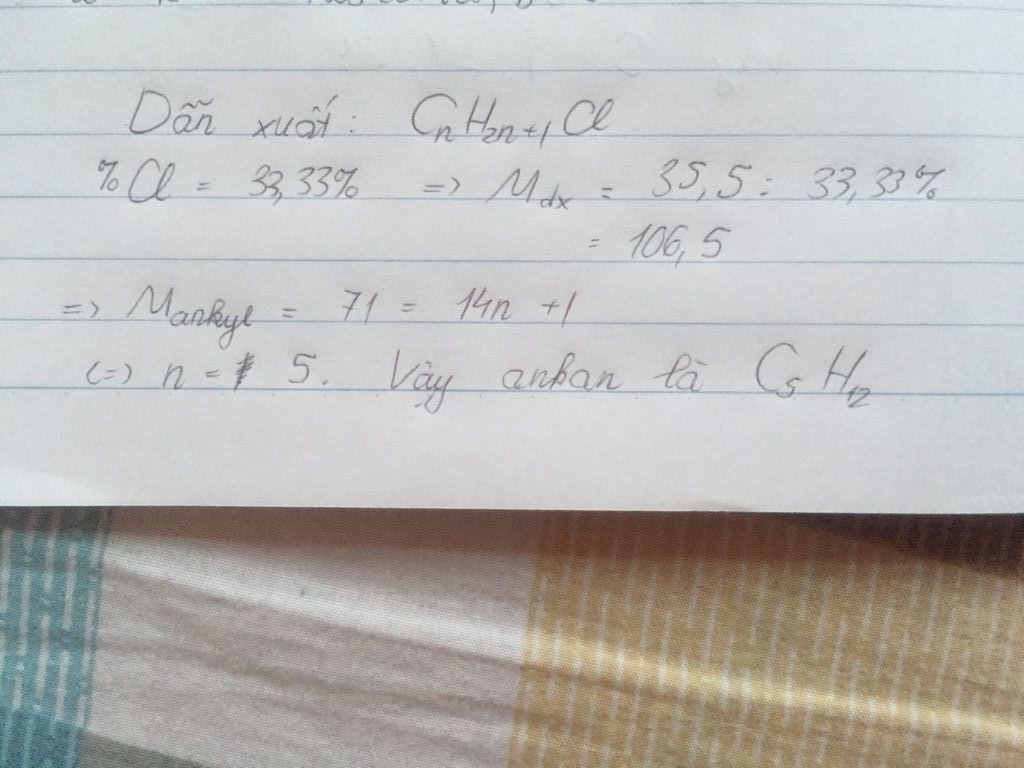 Dẫn xuất: CnH2n+1Cl
%Cl = 33,33% => Mdx = 35,5 : 33,33%
= 106,5
=> Mankyl = 71 = 14n +1
(=) n = 5. Vậy ankan là C5H12